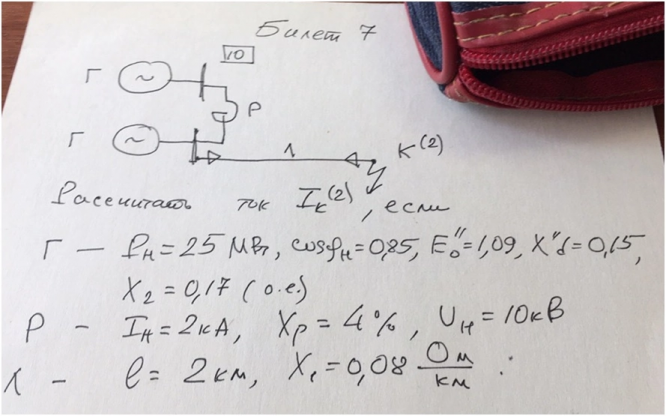 Билет 7
10
Г
Р
Г
Л
К(2)
Рассчитать ток Iк(2), если
Г – Рн=25 МВт, cosφн=0,85, E″₀=1,09, X″d=0,15,
X₂=0,17 (о.е.)
Р – Iн=2кА, Xр=4%, Uн=10кВ
Л – l=2км, X₁=0,08 Ом/км.